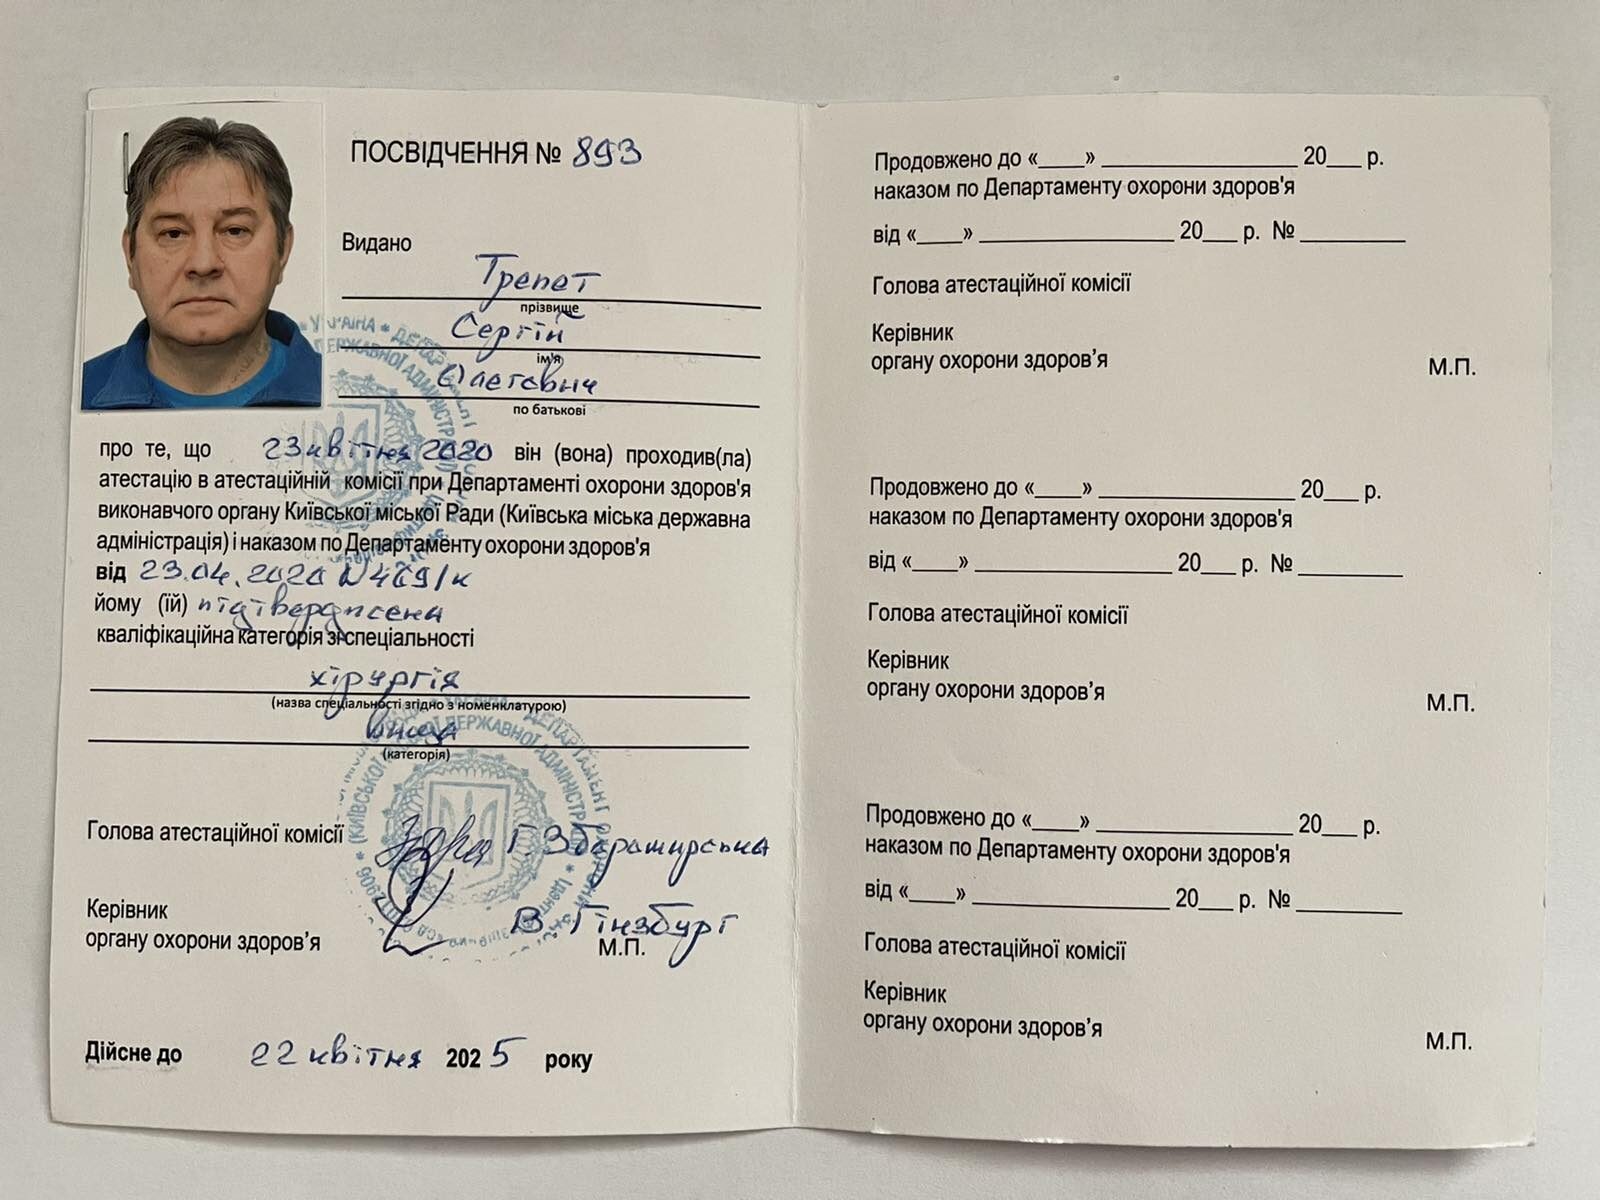 ПОСВІДЧЕННЯ № 893
Видано
Трепет
прізвище
Сергій
ім'я
Олегович
по батькові
про те, що 23 квітня 2020 він (вона) проходив(ла)
атестацію в атестаційній комісії при Департаменті охорони здоров'я
виконавчого органу Київської міської Ради (Київська міська державна
адміністрація) і наказом по Департаменту охорони здоров'я
від 23.04.2020 №469/к
йому (їй) підтверджена
кваліфікаційна категорія зі спеціальності
хірургія
(назва спеціальності згідно з номенклатурою)
вища
(категорія)
Голова атестаційної комісії Г. Збаражирська
Керівник
органу охорони здоров'я
В. Гінзбург
М.П.
Дійсне до 22 квітня 2025 року
Продовжено до «____» ________________ 20___ р.
наказом по Департаменту охорони здоров'я
від «____» ________________ 20___ р. № _________
Голова атестаційної комісії
Керівник
органу охорони здоров'я
М.П.
Продовжено до «____» ________________ 20___ р.
наказом по Департаменту охорони здоров'я
від «____» ________________ 20___ р. № _________
Голова атестаційної комісії
Керівник
органу охорони здоров'я
М.П.
Продовжено до «____» ________________ 20___ р.
наказом по Департаменту охорони здоров'я
від «____» ________________ 20___ р. № _________
Голова атестаційної комісії
Керівник
органу охорони здоров'я
М.П.